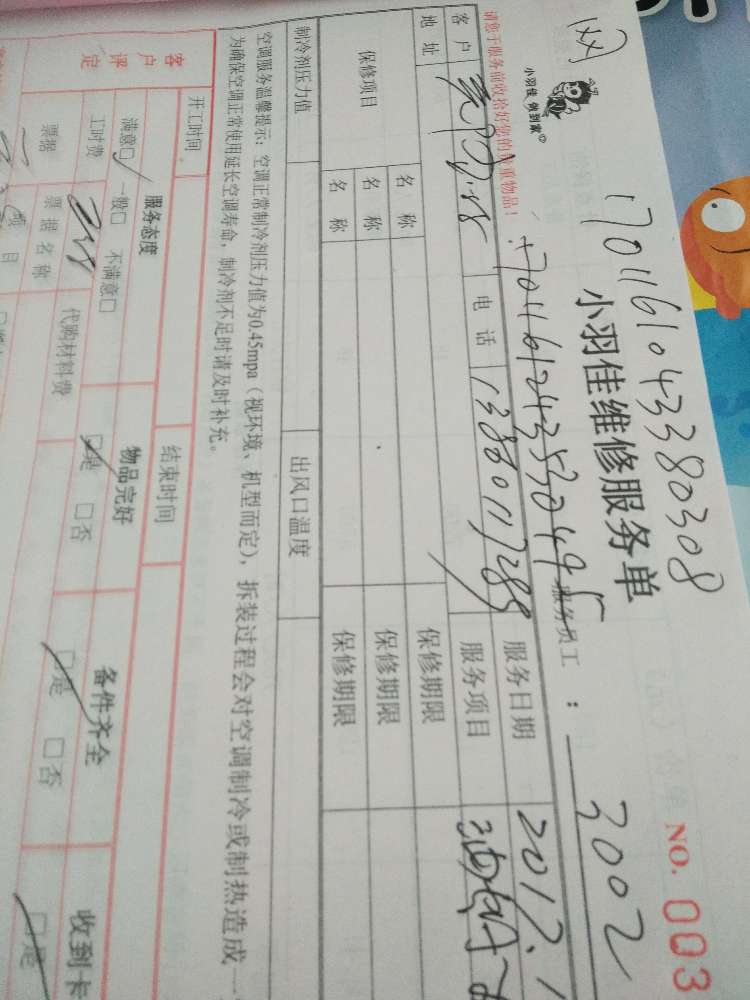 网
1701161043380308
小羽佳 做到家
小羽佳维修服务单
NO. 003
1701161243530495
服务员工 : 3002
请您于服务前收拾好您的贵重物品!
客 户
电 话 13860117289
服务日期 2017.1
地 址
服务项目
保修项目
名 称
保修期限
名 称
保修期限
名 称
保修期限
制冷剂压力值
出风口温度
空调服务温馨提示:空调正常制冷剂压力值为0.45mpa(视环境、机型而定),拆装过程会对空调制冷或制热造成一
为确保空调正常使用延长空调寿命,制冷剂不足时请及时补充。
开工时间
结束时间
客户评定
服务态度
物品完好
备件齐全
收到卡
满意□ 一般□ 不满意□
□是 □否
□是 □否
□是
工时费
代购材料费
票据
票据名称
项目